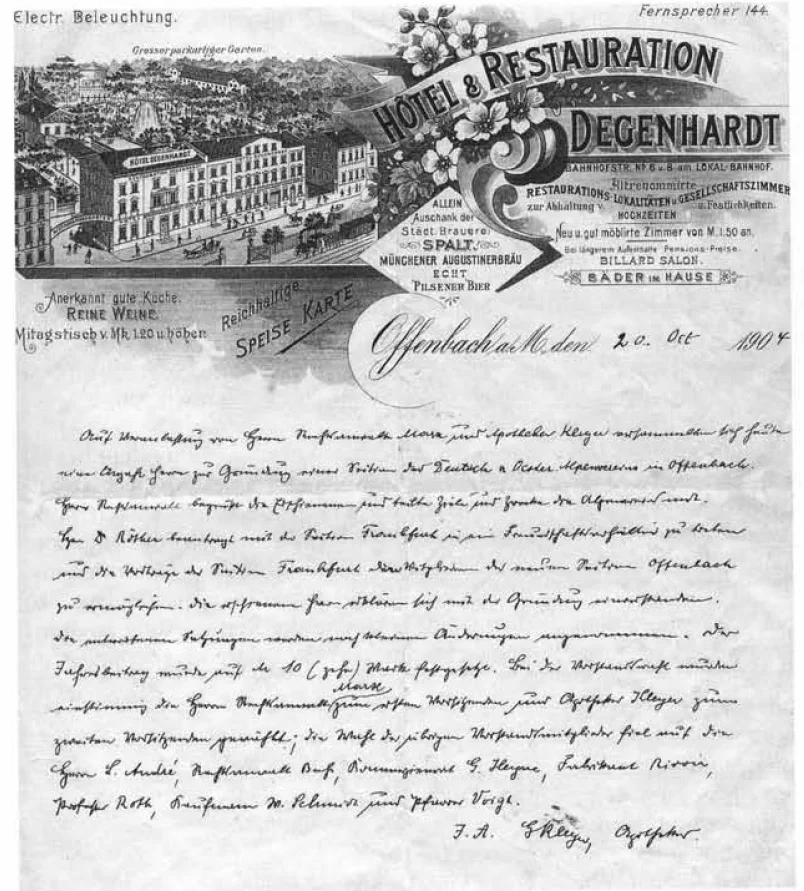 Electr. Beleuchtung.
Fernsprecher 144.
Grosser parkartiger Garten.
HÔTEL & RESTAURATION
DEGENHARDT
HÔTEL DEGENHARDT
BAHNHOFSTR. No 6 u. 8 am LOKAL-BAHNHOF.
Altrenommirte
RESTAURATIONS-LOKALITÄTEN u. GESELLSCHAFTSZIMMER
zur Abhaltung v. HOCHZEITEN u. Festlichkeiten.
Neu u. gut möblirte Zimmer von M. 1.50 an.
Bei längerem Aufenthalte Pensions-Preise.
BILLARD SALON.
BÄDER IM HAUSE
ALLEIN
Auschank der
Städt. Brauerei
SPALT.
MÜNCHENER AUGUSTINERBRÄU
ECHT
PILSENER BIER
Anerkannt gute Küche.
REINE WEINE.
Mitagstisch v. Mk. 1.20 u. höher.
Reichhaltige
SPEISE KARTE
Offenbach a. M. den 20. Oct 1904
Auf Veranlassung von Herrn Rechtsanwalt Marx und Apotheker Kleyer versammelten sich heute
eine Anzahl Herren zur Gründung einer Section des Deutsch u Oester. Alpenvereins in Offenbach.
Herr Rechtsanwalt begrüßt die Erschienenen und teilte Ziele und Zwecke des Alpenvereins mit.
Herr Dr Röther beantragt mit der Section Frankfurt in ein Freundschaftsverhältnis zu treten
und die Vorträge der Section Frankfurt den Mitgliedern der neuen Section Offenbach
zu ermöglichen. Die erschienenen Herren erklären sich mit der Gründung einverstanden.
Die entworfenen Satzungen werden nach kleinen Änderungen angenommen. Der
Jahresbeitrag wurde auf M 10 (zehn) Mark festgesetzt. Bei der Vorstandswahl wurden
einstimmig die Herren Rechtsanwalt Marx zum ersten Vorsitzenden und Apotheker Kleyer zum
zweiten Vorsitzenden gewählt; die Wahl der übrigen Vorstandsmitglieder fiel auf die
Herren L. André, Rechtsanwalt, Kommerzienrat G., Fabrikant,
Professor Roth, Kaufmann W. Schmidt und Pfarrer Voigt.
I. A. G Kleyer, Apotheker.